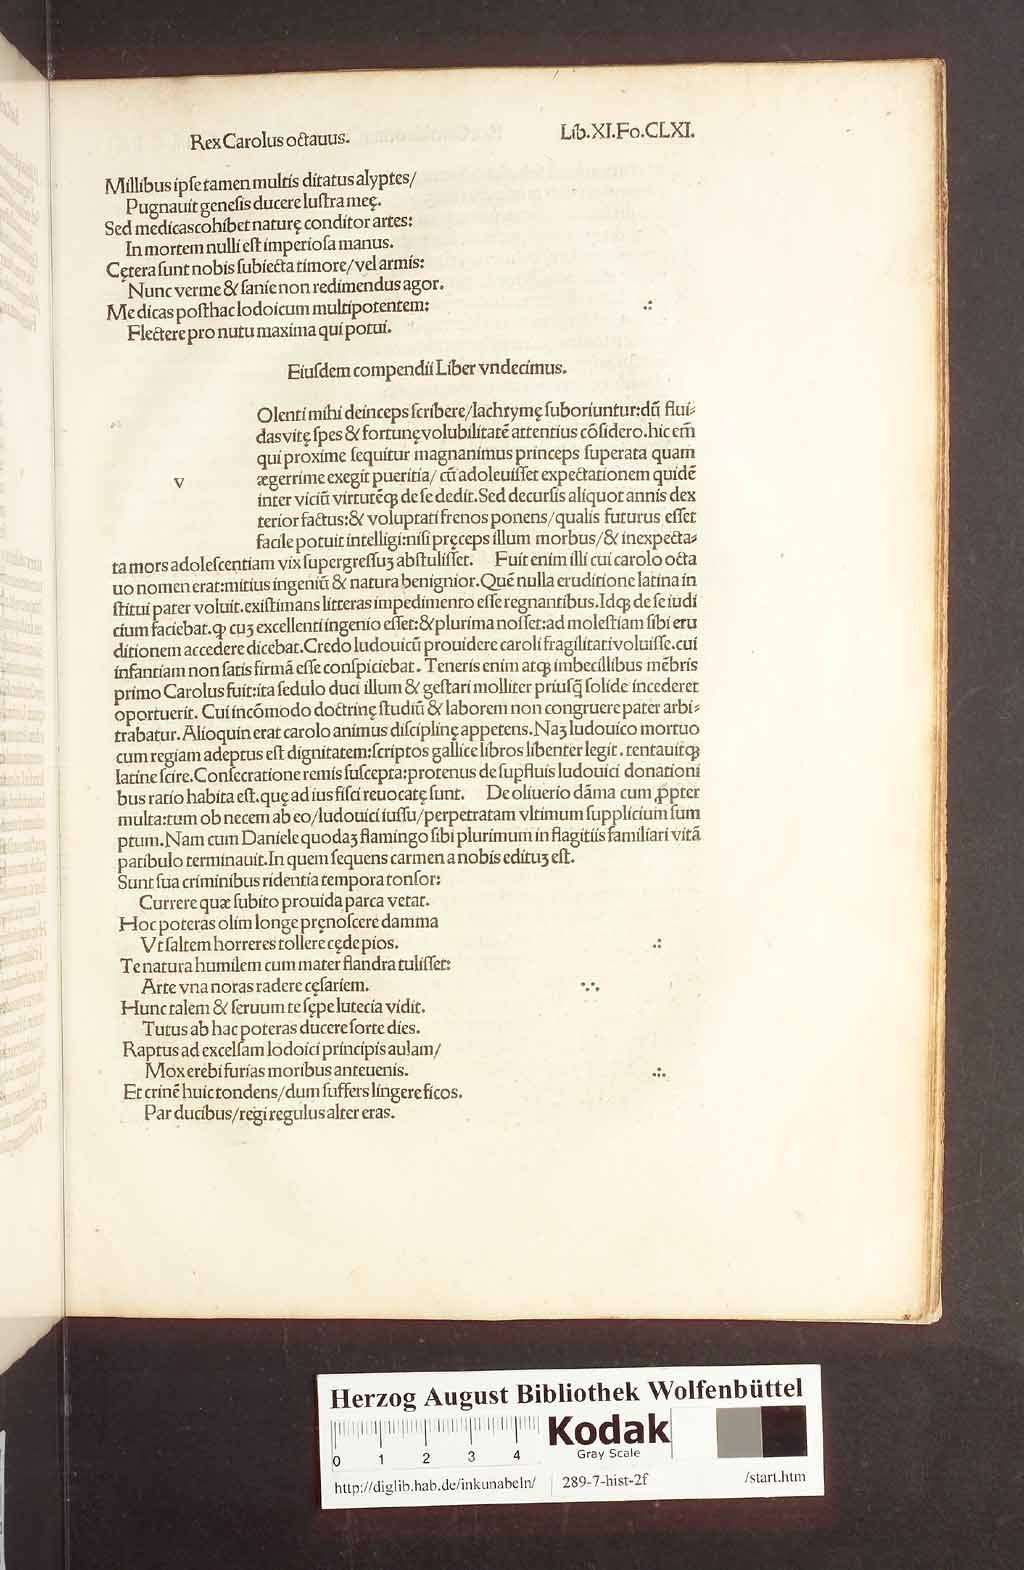 Rex Carolus octauus. Lib.XI.Fo.CLXI.
Millibus ipſe tamen multis ditatus alyptes/
Pugnauit geneſis ducere luſtra meę.
Sed medicas cohibet naturę conditor artes:
In mortem nulli eſt imperioſa manus.
Cętera ſunt nobis ſubiecta timore/vel armis:
Nunc verme & ſanie non redimendus agor.
Me dicas poſthac lodoicum multipotentem:
Flectere pro nutu maxima qui potui.
Eiuſdem compendii Liber vndecimus.
Olenti mihi deinceps ſcribere/lachrymę ſuboriuntur:dū flui⸗
das vitę ſpes & fortunę volubilitatē attentius cōſidero.hic em̄
qui proxime ſequitur magnanimus princeps ſuperata quam
v
ægerrime exegit pueritia/ cū adoleuiſſet expectationem quidē
inter viciū virtutēqꝫ de ſe dedit.Sed decurſis aliquot annis dex
terior factus:& voluptati frenos ponens/qualis futurus eſſet
facile potuit intelligi:niſi pręceps illum morbus/& inexpecta⸗
ta mors adoleſcentiam vix ſupergreſſuꝫ abſtuliſſet. Fuit enim illi cui carolo octa
uo nomen erat:mitius ingeniū & natura benignior.Quē nulla eruditione latina in
ſtitui pater voluit.exiſtimans litteras impedimento eſſe regnantibus.Idqꝫ de ſe iudi
cium faciebat.ꝙ cuꝫ excellenti ingenio eſſet:& plurima noſſet:ad moleſtiam ſibi eru
ditionem accedere dicebat.Credo ludouicū prouidere caroli fragilitati voluiſſe.cui
infantiam non ſatis firmā eſſe conſpiciebat. Teneris enim atqꝫ imbecillibus mēbris
primo Carolus fuit:ita ſedulo duci illum & geſtari molliter priuſq̄ ſolide incederet
oportuerit. Cui incōmodo doctrinę ſtudiū & laborem non congruere pater arbi⸗
trabatur.Alioquin erat carolo animus diſciplinę appetens.Naꝫ ludouico mortuo
cum regiam adeptus eſt dignitatem:ſcriptos gallice libros libenter legit.tentauitqꝫ
latine ſcire.Conſecratione remis ſuſcepta:protenus de ſupfluis ludouici donationi
bus ratio habita eſt.quę ad ius fiſci reuocatę ſunt. De oliuerio dāma cum ꝓpter
multa:tum ob necem ab eo/ludouici iuſſu/perpetratam vltimum ſupplicium ſum
ptum.Nam cum Daniele quodaꝫ flamingo ſibi plurimum in flagitiis familiari vitā
patibulo terminauit.In quem ſequens carmen a nobis edituꝫ eſt.
Sunt ſua criminibus ridentia tempora tonſor:
Currere quæ ſubito prouida parca vetat.
Hoc poteras olim longe pręnoſcere damma
Vt ſaltem horreres tollere cęde pios.
Te natura humilem cum mater flandra tuliſſet:
Arte vna noras radere cęſariem.
Hunc talem & ſeruum te ſępe lutecia vidit.
Tutus ab hac poteras ducere forte dies.
Raptus ad excelſam lodoici principis aulam/
Mox erebi furias moribus anteuenis.
Et crinē huic tondens/dum ſuffers lingere ficos.
Par ducibus/regi regulus alter eras.
Herzog August Bibliothek Wolfenbüttel
0 1 2 3 4
Kodak
Gray Scale
http://diglib.hab.de/inkunabeln/ 289-7-hist-2f /start.htm